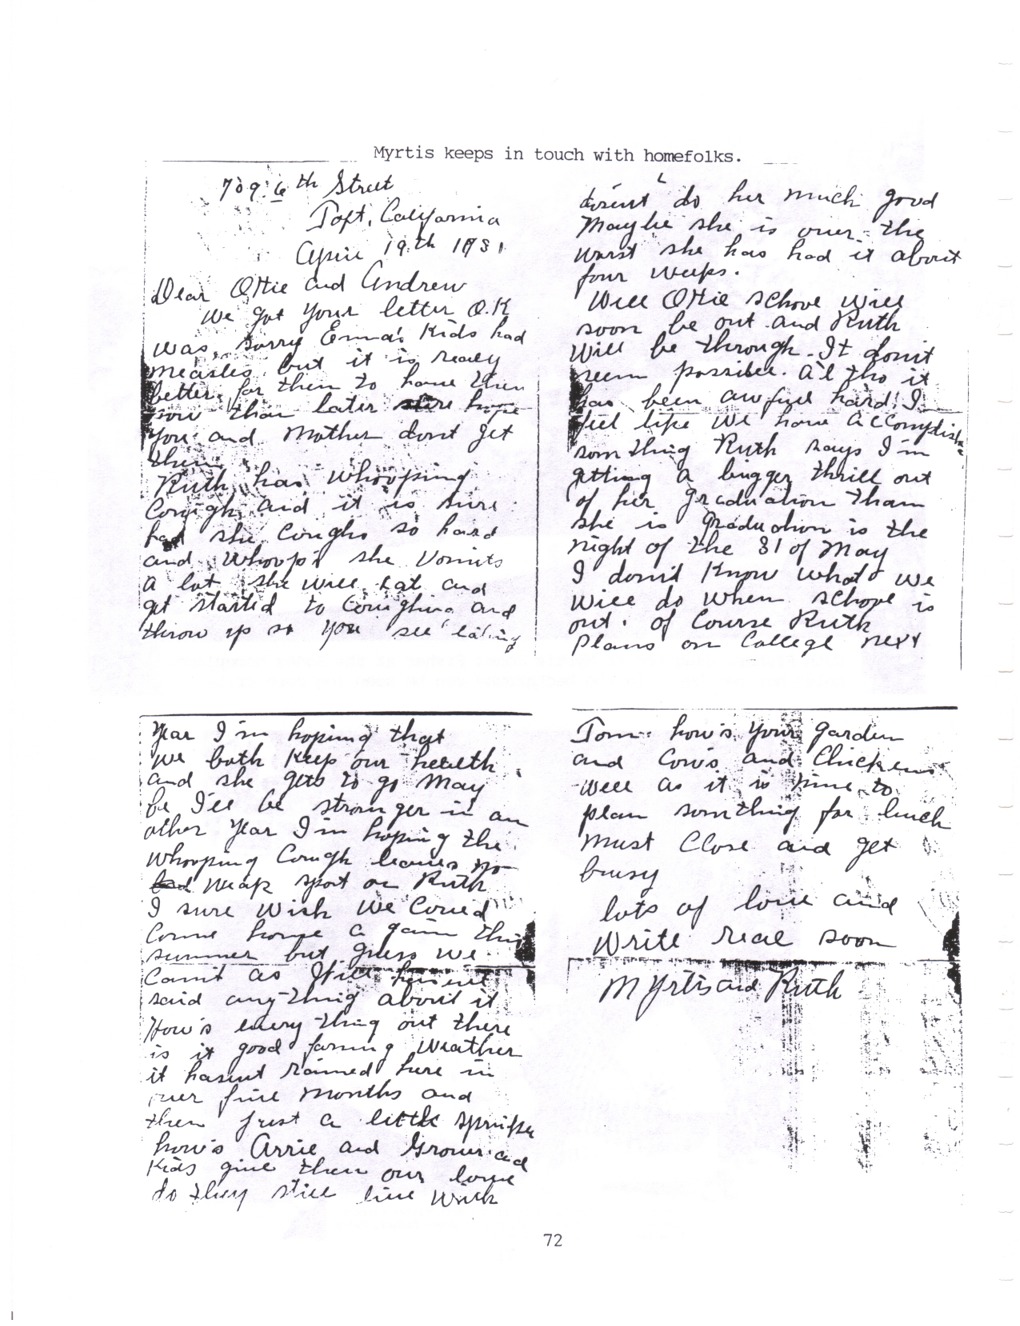 Myrtis keeps in touch with homefolks.
709. 6th Street
Taft, California
April 19th 1931
Dear Ottie and Andrew
We got your letter O.K
was sorry Emma's Kids had
measles but it is really
better for them to have them
now than later sure hope
you and Mother dont get
them
Ruth has Whooping
Cough and it is sure
bad she Coughs so hard
and Whoop's she Vomits
a lot she will Eat and
get started to Coughing and
throw up so you see eating
dosent do her much good
Maybe she is over the
worst she has had it about
four weeks.
Well Ottie school will
soon be out and Ruth
will be through. It dont
seem possible. al tho it
has been awful hard I
feel like we have accomplish
som thing Ruth says I'm
getting a bigger thrill out
of her graduation than
she is graduation is the
night of the 31 of May
I don't Know what we
will do when school is
out. of Course Ruth
plans on College next
Year I'm hoping that
we both Keep our health
and she gets to go May
be I'll be stronger in an
other Year I'm hoping the
Whooping Cough leaves no
bad weak spot on Ruth
I sure wish we Could
Come home a gain this
summer but guess we
Can't as havent
said any-thing about it
How's every-thing out there
is it good farming Weather
it hasent rained here in
over five months and
then just a little sprinkle
how's Arrie and Grover and
Kids give them our love
do they still live with
Tom. how's your garden
and Cow's and Chickens
well as it is time to
plan som thing for lunch
Must Close and get
busy
lots of love and
Write real soon
Myrtis and Ruth
72